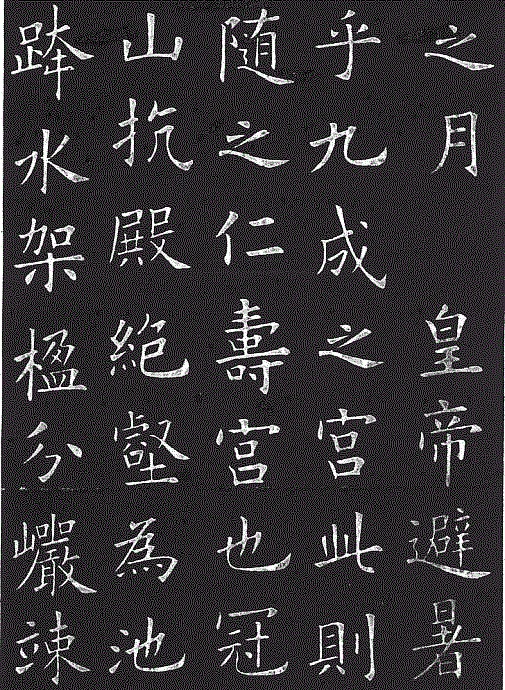 之月皇帝避暑
乎九成之宮此則
隨之仁壽宮也冠
山抗殿絕壑為池
跨水架楹分巖竦